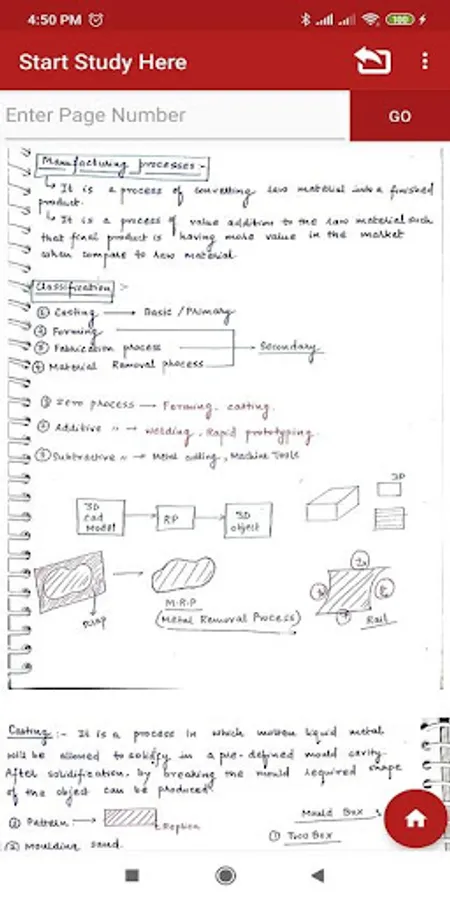 4:50 PM
100
Start Study Here
Enter Page Number
GO
Manufacturing processes:-
↳ It is a process of converting raw material into a finished
product.
↳ It is a process of value addition to the raw material such
that final product is having more value in the market
when compare to raw material
Classification :-
① Casting → Basic / Primary
② Forming
③ Fabrication process → Secondary
④ Material Removal process
① Zero process → Forming, casting.
② Additive " → welding, Rapid prototyping.
③ Subtractive " → Metal cutting, Machine Tools
3D
Cad
Model
RP
3D
object
3D
M.R.P
(Metal Removal Process)
Rail
Casting :- It is a process in which molten liquid metal
will be allowed to solidify in a pre-defined mould cavity.
After solidification, by breaking the mould required shape
of the object can be produced
① Pattern: →
Replica
Mould Box
① Two Box
② Moulding sand.